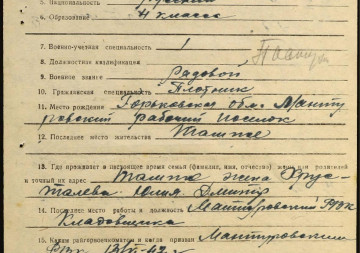 5. Национальность русский
6. Образование 4 класса
7. Военно-учетная специальность 1
8. Должностная квалификация
9. Военное звание Рядовой
10. Гражданская специальность Плотник
11. Место рождения Горьковская обл. Манту
ровский рабочий поселок
12. Последнее место жительства Там же
13. Где проживает в настоящее время семья (фамилия, имя, отчество) жены или родителей
и точный их адрес Там же жена
Юлия Дмитр
14. Последнее место работы и должность Мантуровский
Кладовщика
15. Каким райгорвоенкоматом и когда призван Мантуровским